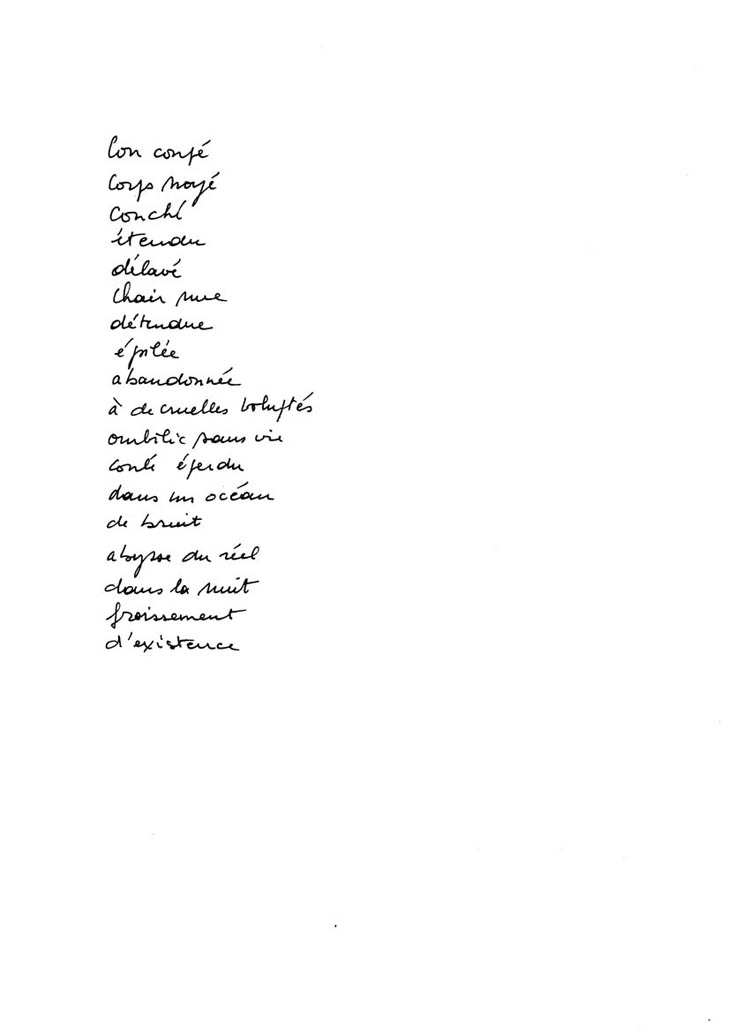 Cou coupé
Corps noyé
Couché
étendu
délavé
Chair nue
détendue
épilée
abandonnée
à de cruelles voluptés
ombilic sans vie
coulé éperdu
dans un océan
de bruit
abysse du réel
dans la nuit
froissement
d'existence